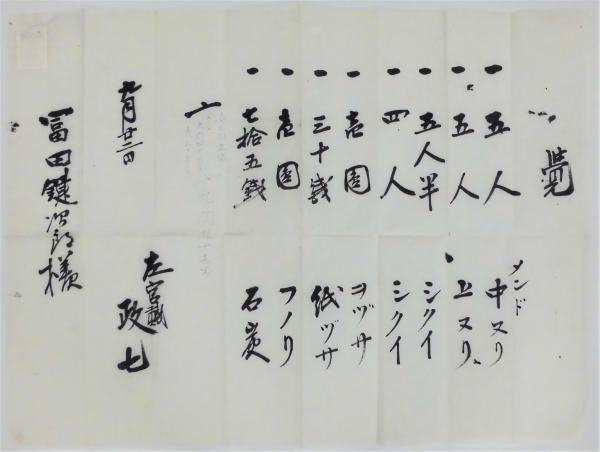 覺
一 五人 メンド 中ヌリ
一 五人 上ヌリ
一 五人半 シクイ
一 四人 シクイ
一 壱圓 ヲヅサ
一 三十銭 紙ヅサ
一 壱圓 フノリ
一 七拾五銭 石炭
九月廿三日
左官職 政七
冨田鍵次郎様